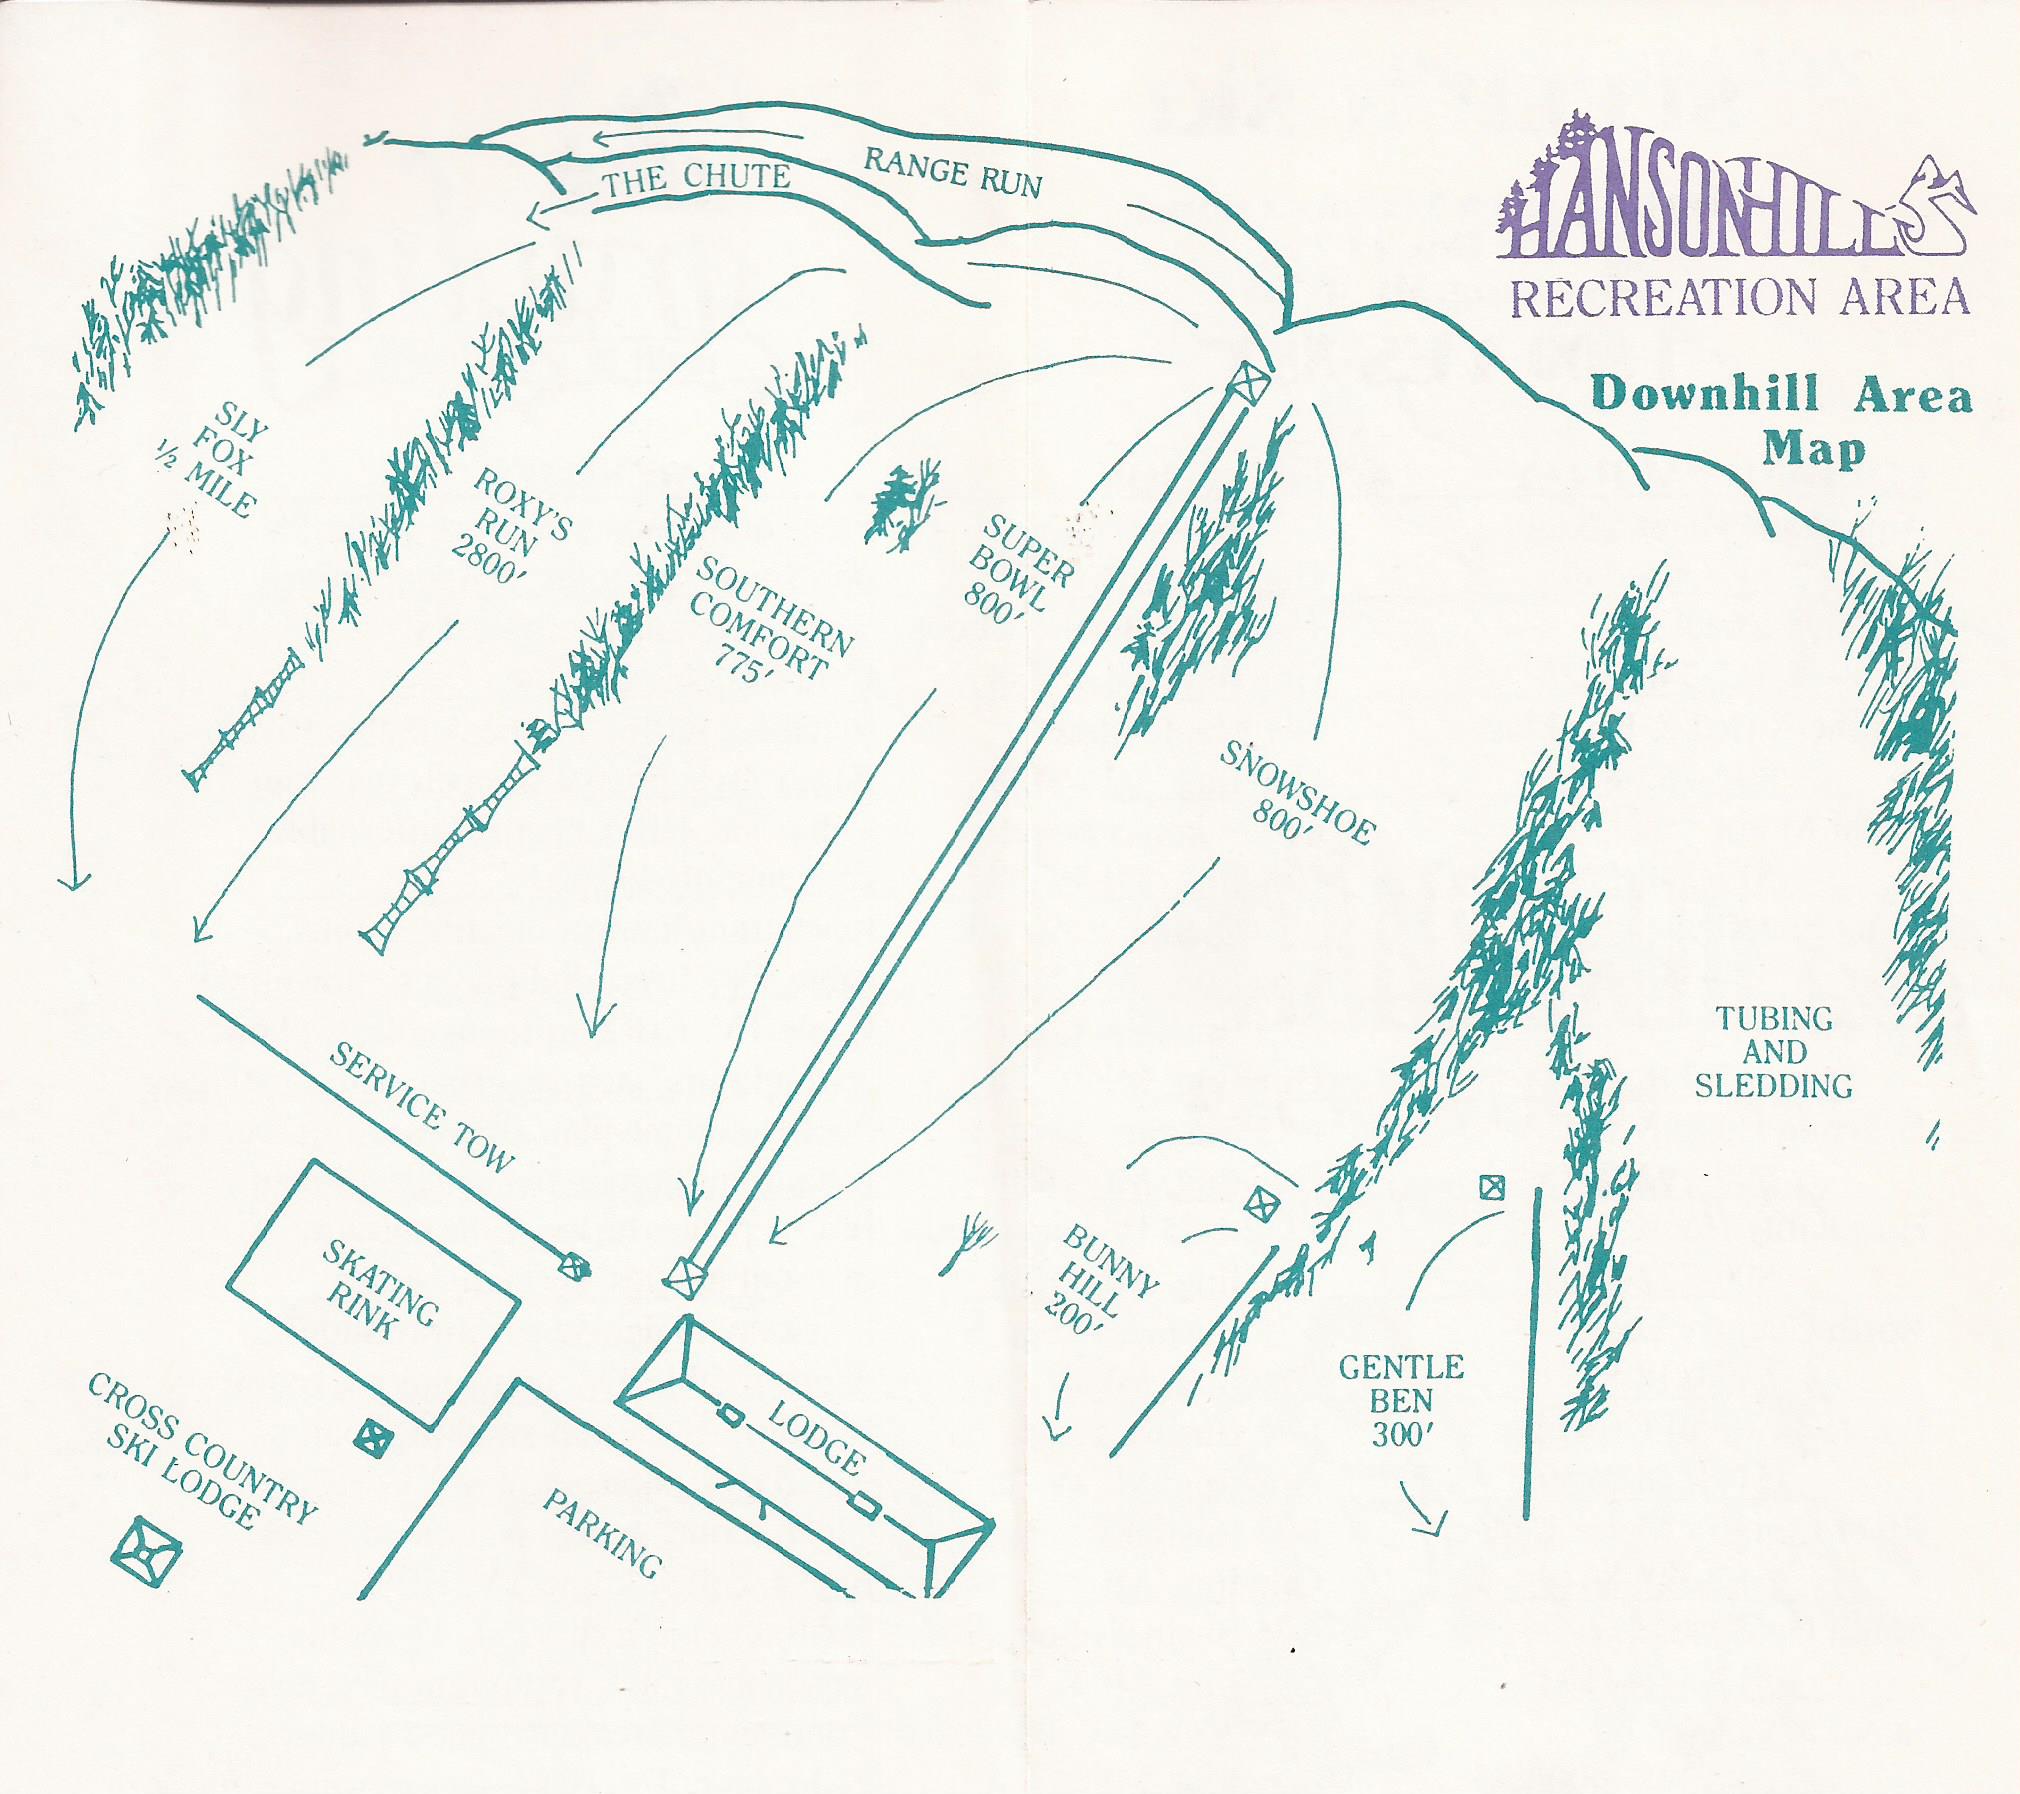 HANSON HILLS
RECREATION AREA
Downhill Area
Map
RANGE RUN
THE CHUTE
SLY
FOX
1/2 MILE
ROXY'S
RUN
2800'
SOUTHERN
COMFORT
775'
SUPER
BOWL
800'
SNOWSHOE
800'
TUBING
AND
SLEDDING
SERVICE TOW
SKATING
RINK
BUNNY
HILL
200'
GENTLE
BEN
300'
CROSS COUNTRY
SKI LODGE
LODGE
PARKING